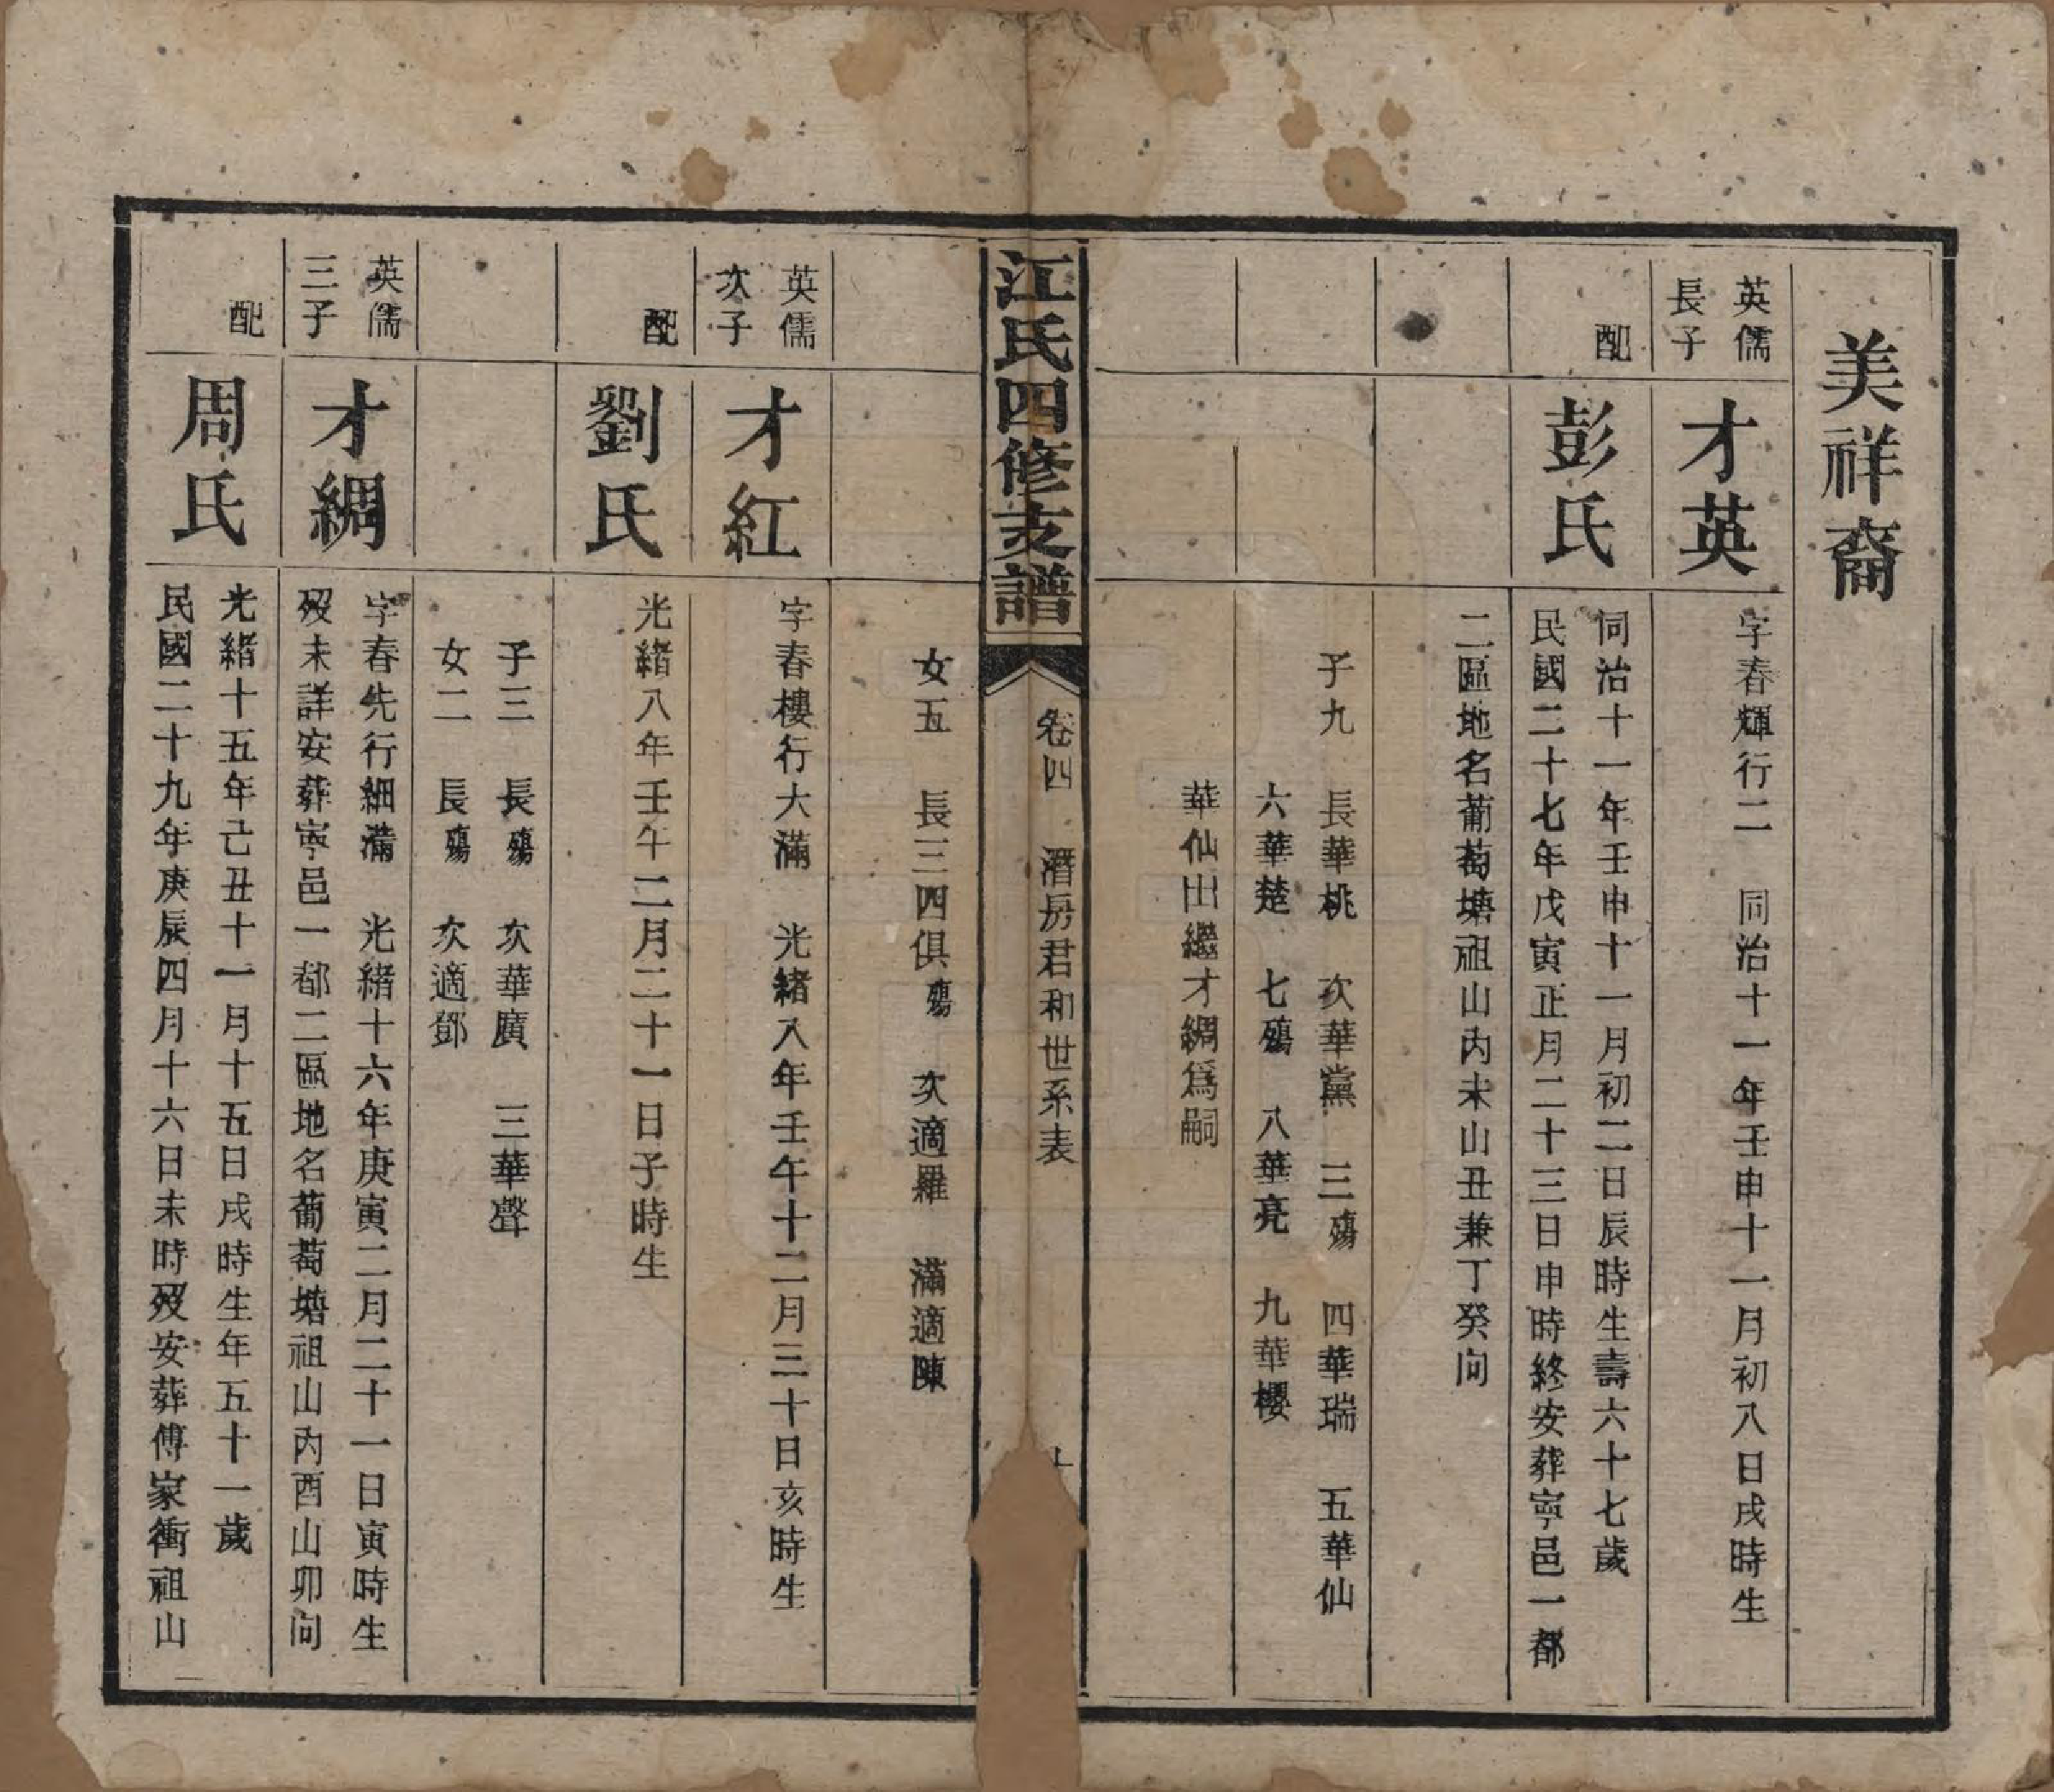 美祥裔
英儒
長子
才英
字春輝行二 同治十一年壬申十一月初八日戌時生
配
彭氏
同治十一年壬申十一月初二日辰時生壽六十七歲
民國二十七年戊寅正月二十三日申時終安葬寧邑一都
二區地名葡萄塘祖山內未山丑兼丁癸向
子九 長華桃 次華黨 三殤 四華瑞 五華仙
六華楚 七殤 八華亮 九華櫻
華仙出繼才綢爲嗣
江氏四修支譜
卷四 潛房君和世系表
女五 長三四俱殤 次適羅 滿適陳
英儒
次子
才紅
字春樓行大滿 光緒八年壬午十二月三十日亥時生
配
劉氏
光緒八年壬午二月二十一日子時生
子三 長殤 次華廣 三華聲
女二 長殤 次適鄧
英儒
三子
才綢
字春先行細滿 光緒十六年庚寅二月二十一日寅時生
歿未詳安葬寧邑一都二區地名葡萄塘祖山內酉山卯向
配
周氏
光緒十五年己丑十一月十五日戌時生年五十一歲
民國二十九年庚辰四月十六日未時歿安葬傅家衝祖山